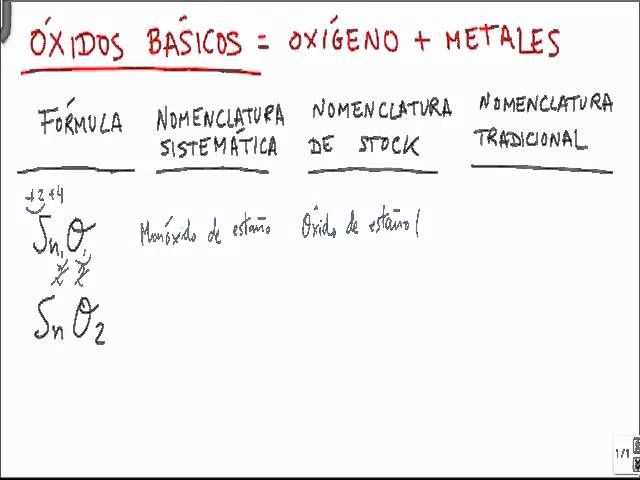 ÓXIDOS BÁSICOS = OXÍGENO + METALES
FÓRMULA
NOMENCLATURA SISTEMÁTICA
NOMENCLATURA DE STOCK
NOMENCLATURA TRADICIONAL
+2 +4
Sn₁O₁ Monóxido de estaño Óxido de estaño (
2 2
SnO₂
1/1